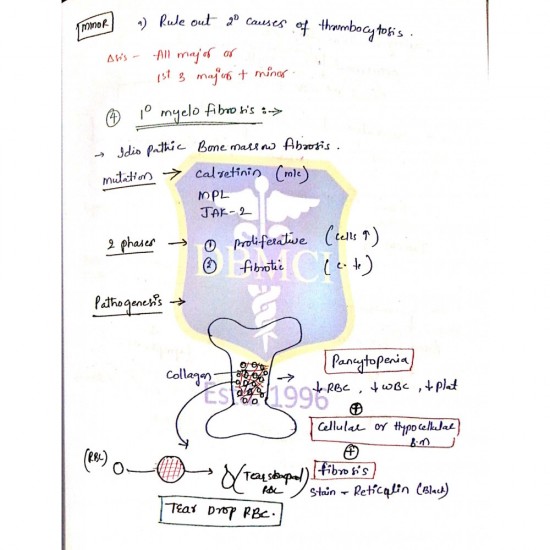 MINOR
1) Rule out 2° causes of thrombocytosis.
Δsis - All major or
1st 3 major + minor
④ 1° myelo fibrosis :→
→ Idiopathic Bone marrow fibrosis.
mutation → calretinin (m/c)
MPL
JAK-2
2 phases → ① Proliferative (cells ↑)
② fibrotic (c.te)
Pathogenesis →
DBMCI
Collagen
Estd. 1996
→ Pancytopenia
↓ RBC, ↓ WBC, ↓ Plat
⊕
Cellular or Hypocellular
B.M
⊕
fibrosis
Stain - Reticulin (Black)
(RBC)
(Tear shaped
RBC)
Tear Drop RBC.